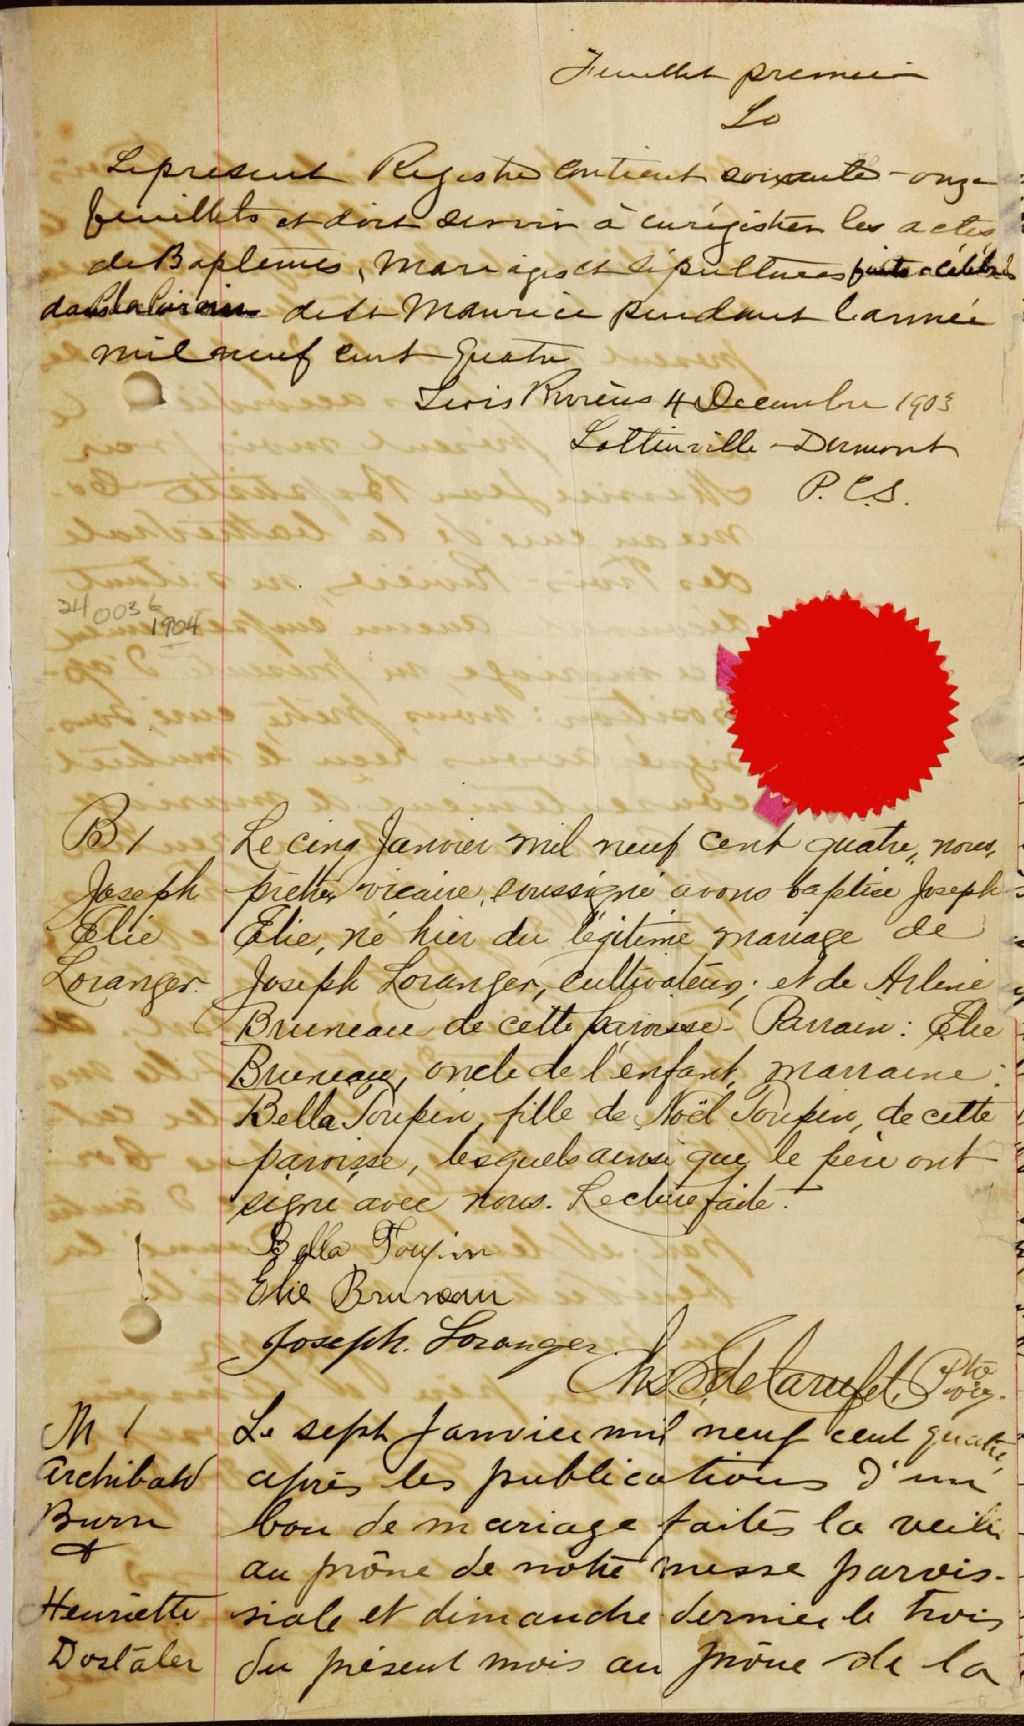 Feuillet premier
Le présent Registre contient soixante-onze
feuillets et doit servir à enrégistrer les actes
de Baptêmes, Mariages et sépultures faits & célébrés
dans la Paroisse de St Maurice pendant l'année
mil neuf cent quatre
Trois Rivières 4 Decembre 1903
Lottinville
P. C. S.
24 003
1904
B 1
Joseph
Élie
Loranger.
Le cinq Janvier mil neuf cent quatre, nous,
prêtre vicaire, soussigné avons baptisé Joseph
Élie, né hier du légitime mariage de
Joseph Loranger, cultivateur, et de
Bruneau de cette paroisse. Parrain: Élie
Bruneau, oncle de l'enfant, marraine:
Bella Toupin, fille de Noël Toupin, de cette
paroisse, lesquels ainsi que le père ont
signé avec nous. Lecture faite.
Bella Toupin
Elie Bruneau
Joseph. Loranger
Ptre
Vic.
M 1
Archibald
Burn
&
Henriette
Dostaler
Le sept Janvier mil neuf cent quatre,
après les publications d'un
ban de mariage faites la veille
au prône de notre messe parois-
siale et dimanche dernier le trois
du présent mois au prône de la